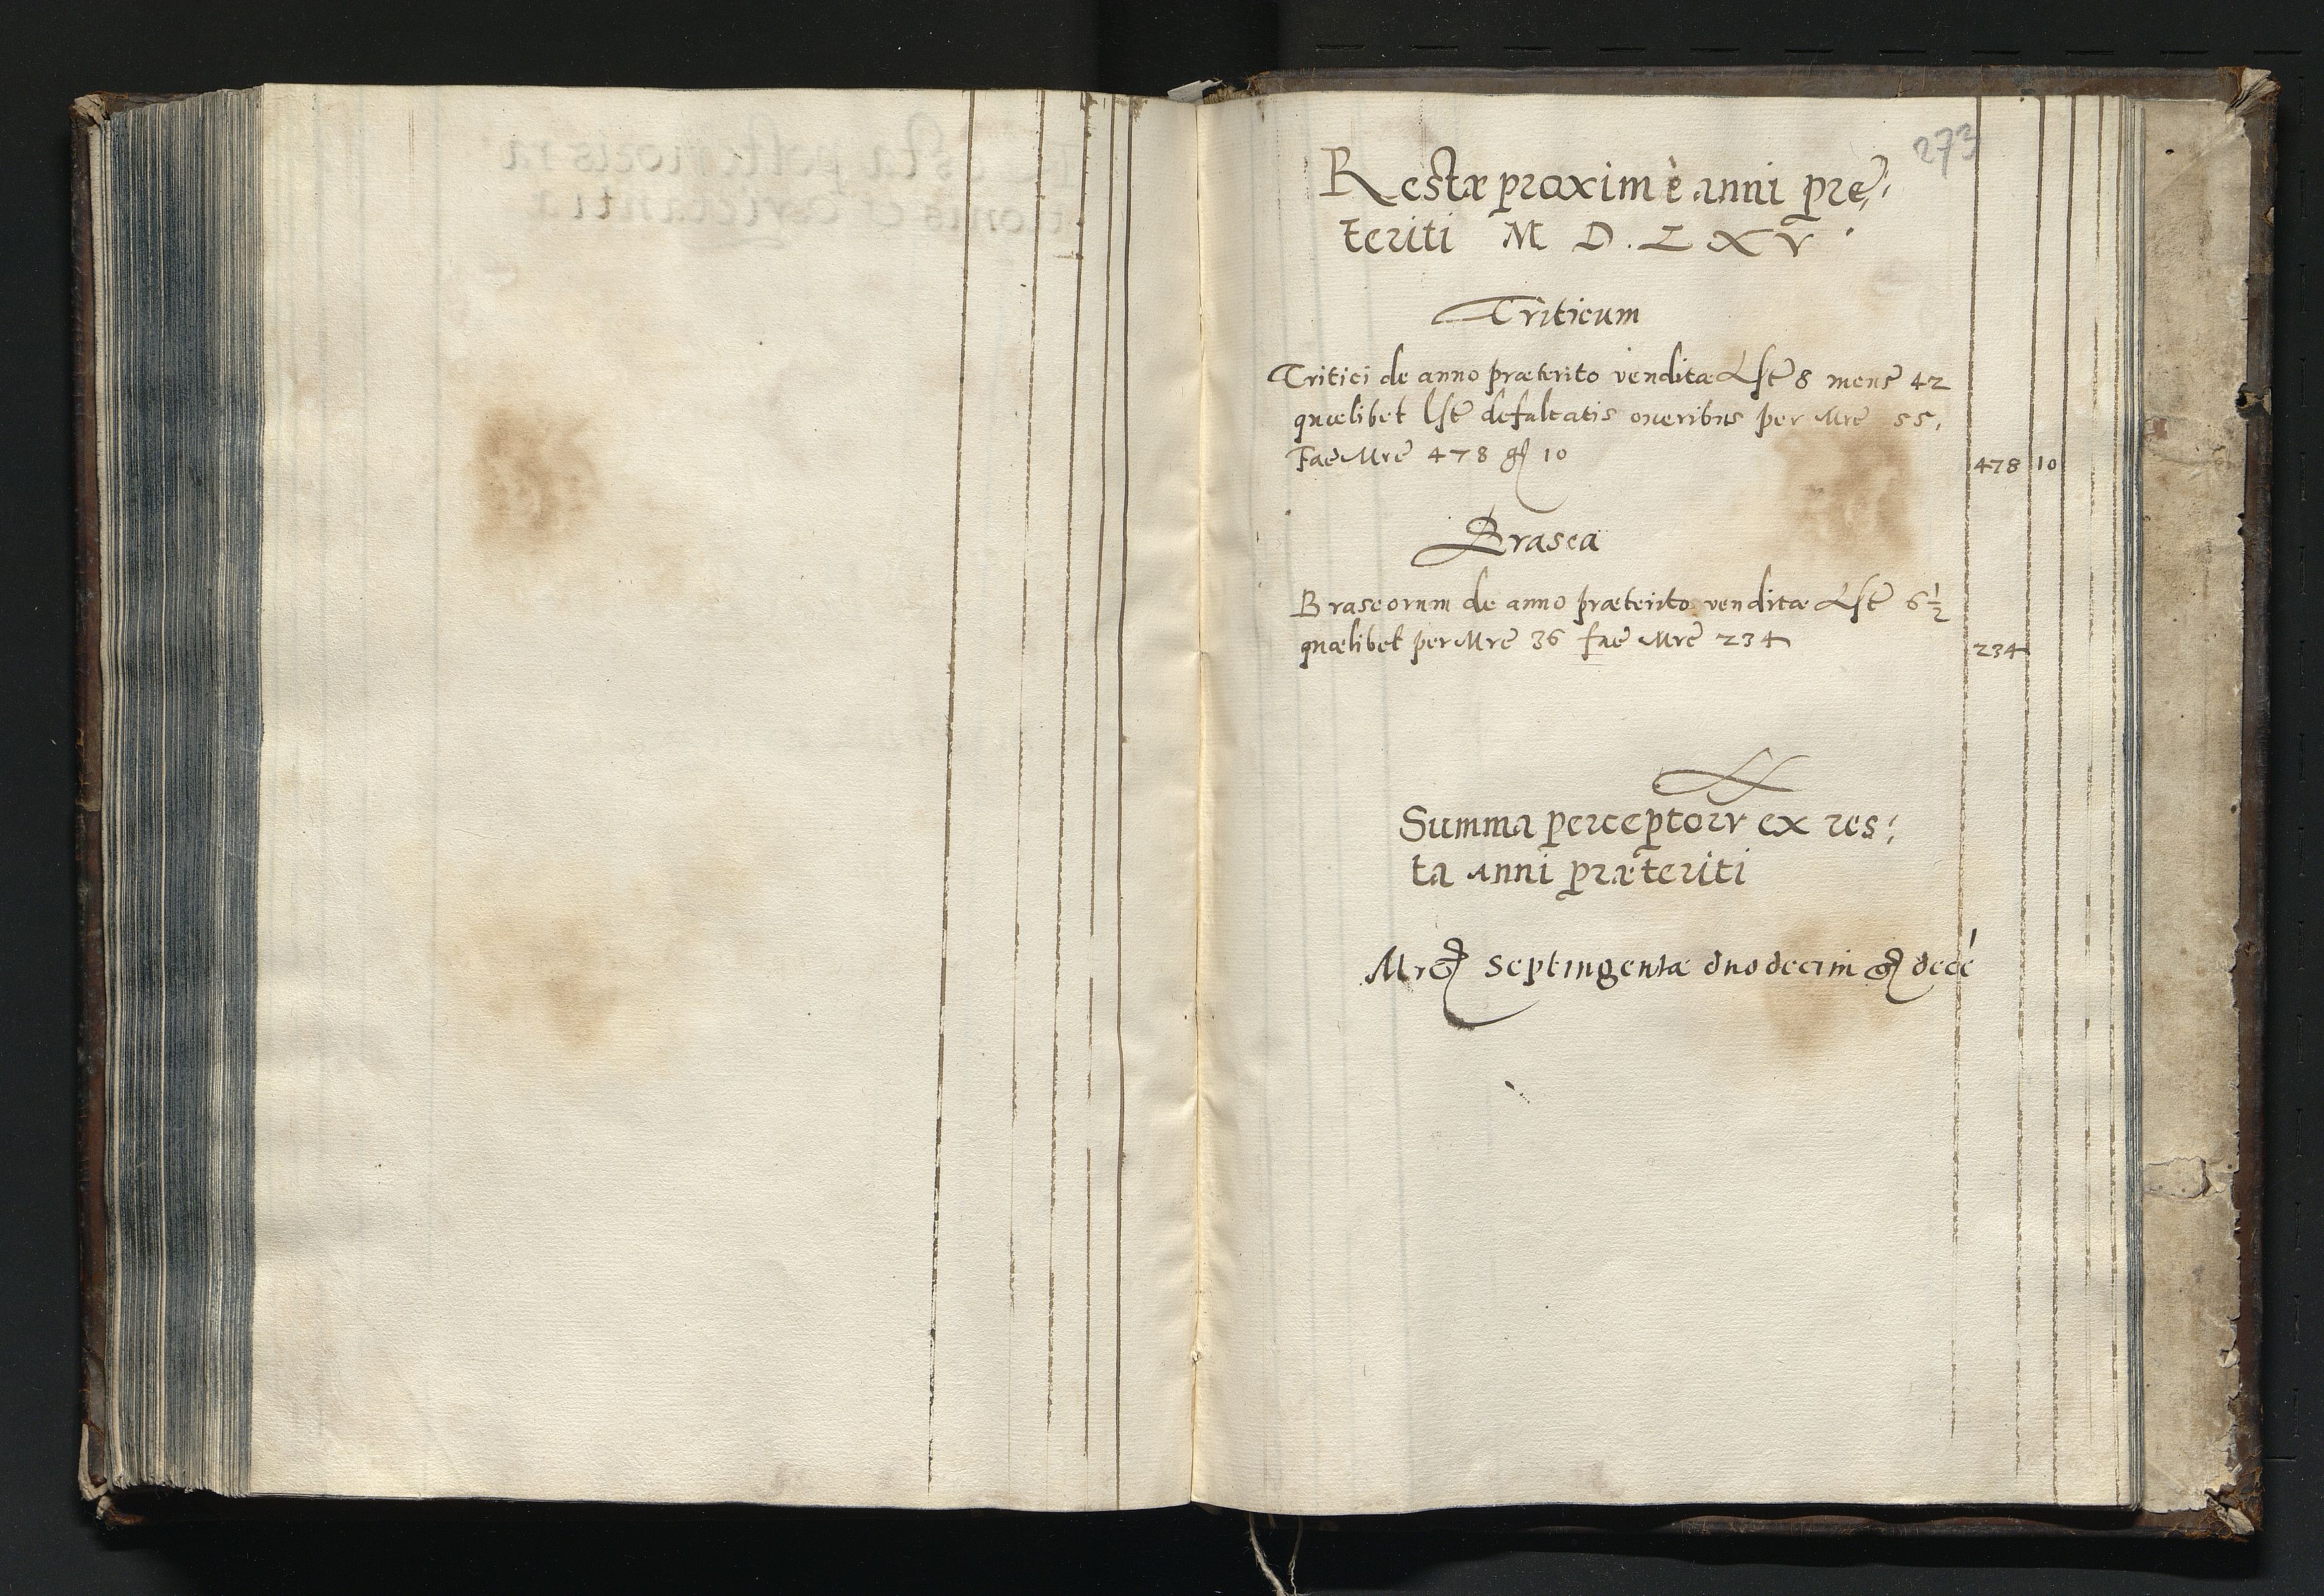 273
Restæ proximè anni præ,,
teriti M D. L X V
Triticum
Tritici de anno præterito venditæ Lst 8 mens 42
quælibet lst defalcatis oneribus per Mre 55,
Fac Mre 478 gr 10
478 10
Brasea
Braseorum de anno præterito venditæ Lst 6 1/2
quælibet per Mre 36 fac Mre 234
234
Summa perceptorr ex res,,
ta anni præteriti
Mre septingentæ duodecim gr decē